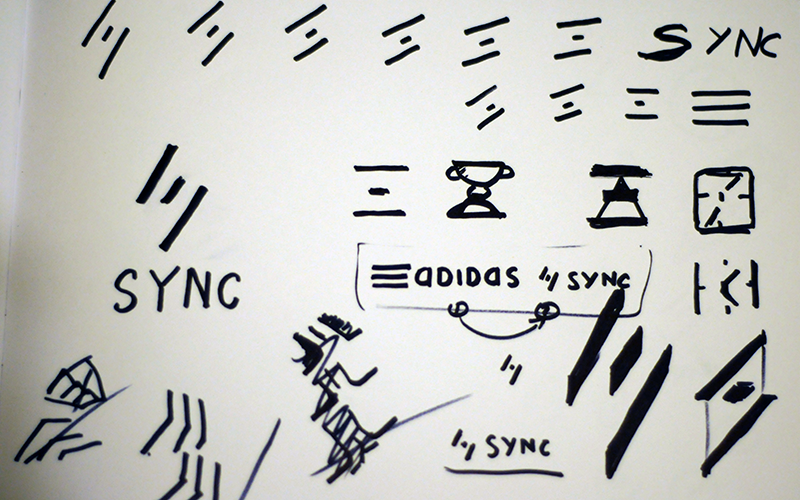 SYNC
SYNC
adidas SYNC
SYNC